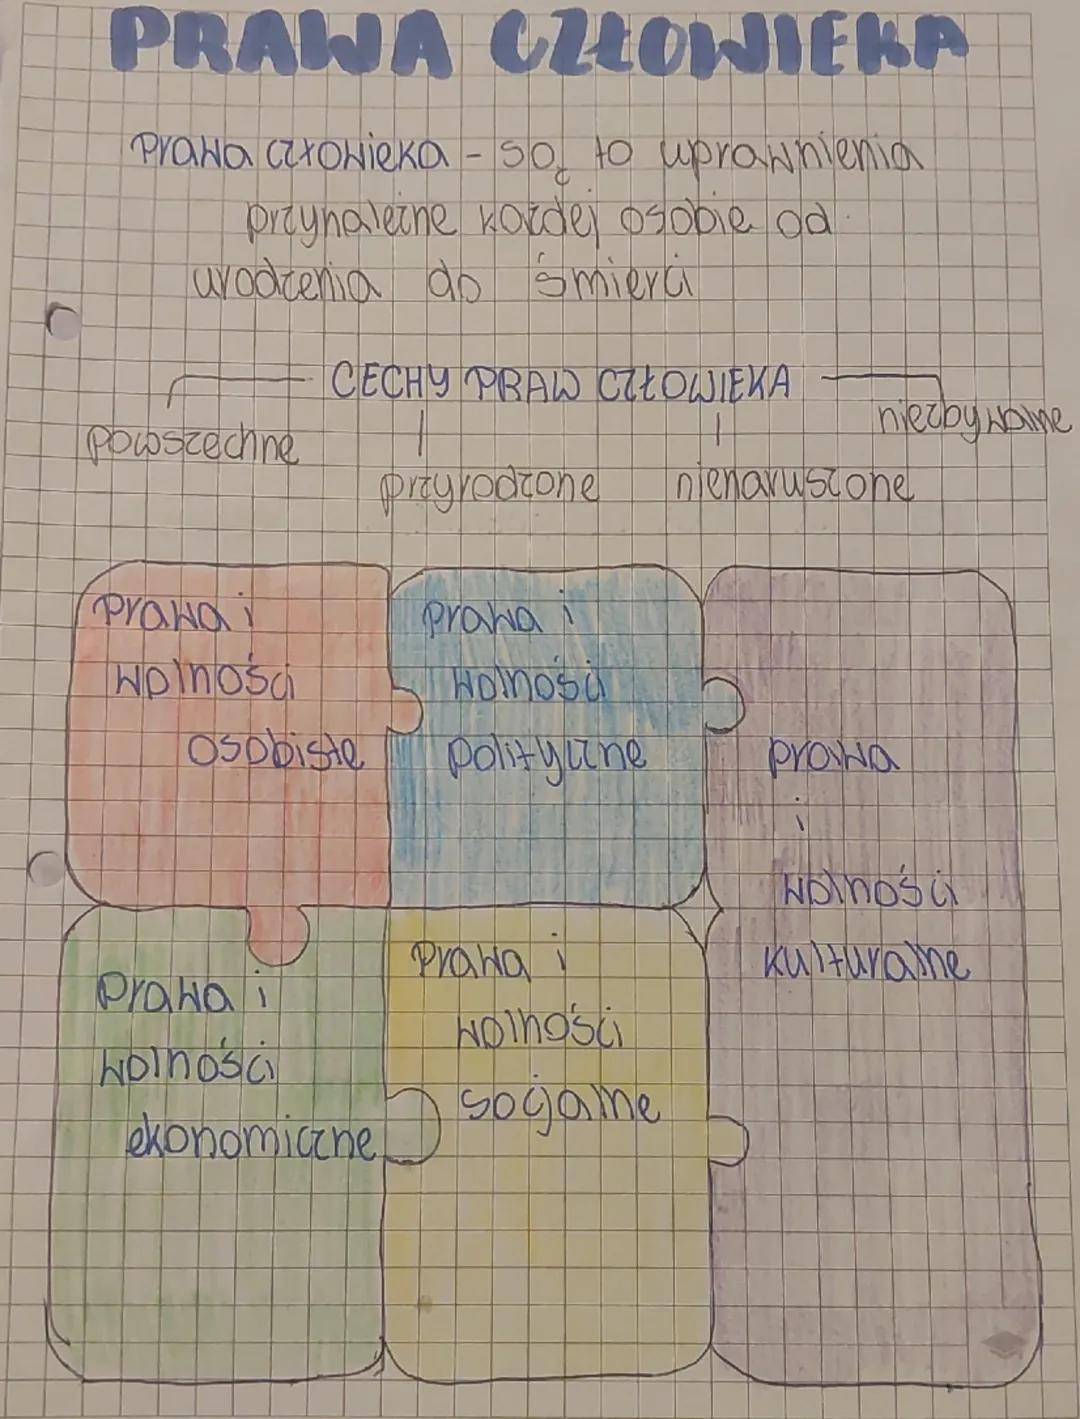 PRAWA CZŁOWIEKA
Prawa człowieka - są to uprawnienia
przynależne każdej osobie od
urodzenia do śmierci
CECHY PRAW CZŁOWIEKA
powszechne
przyrodzone
nienaruszone
niezbywalne
Prawa i
wolności
osobiste
prawa i
wolności
polityczne
prawa
i
wolności
kulturalne
Prawa i
wolności
ekonomiczne
Prawa i
wolności
socjalne